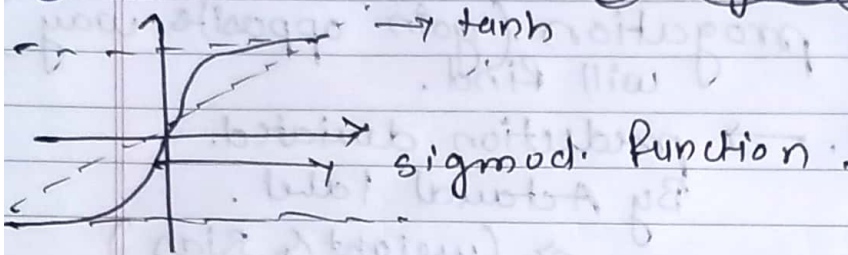 → tanh
sigmod. Function.